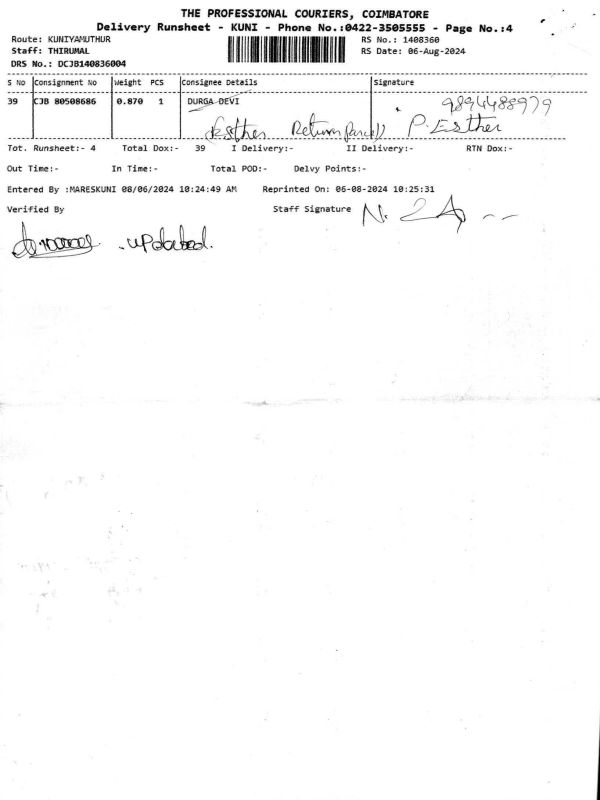 THE PROFESSIONAL COURIERS, COIMBATORE
Delivery Runsheet - KUNI - Phone No.:0422-3505555 - Page No.:4
Route: KUNIYAMUTHUR RS No.: 1408360
Staff: THIRUMAL RS Date: 06-Aug-2024
DRS No.: DCJB140836004
S No Consignment No Weight PCS Consignee Details Signature
39 CJB 80508686 0.870 1 DURGA DEVI 9894488979
Esther Return Parcel P. Esther
Tot. Runsheet:- 4 Total Dox:- 39 I Delivery:- II Delivery:- RTN Dox:-
Out Time:- In Time:- Total POD:- Delvy Points:-
Entered By :MARESKUNI 08/06/2024 10:24:49 AM Reprinted On: 06-08-2024 10:25:31
Verified By Staff Signature
updated.